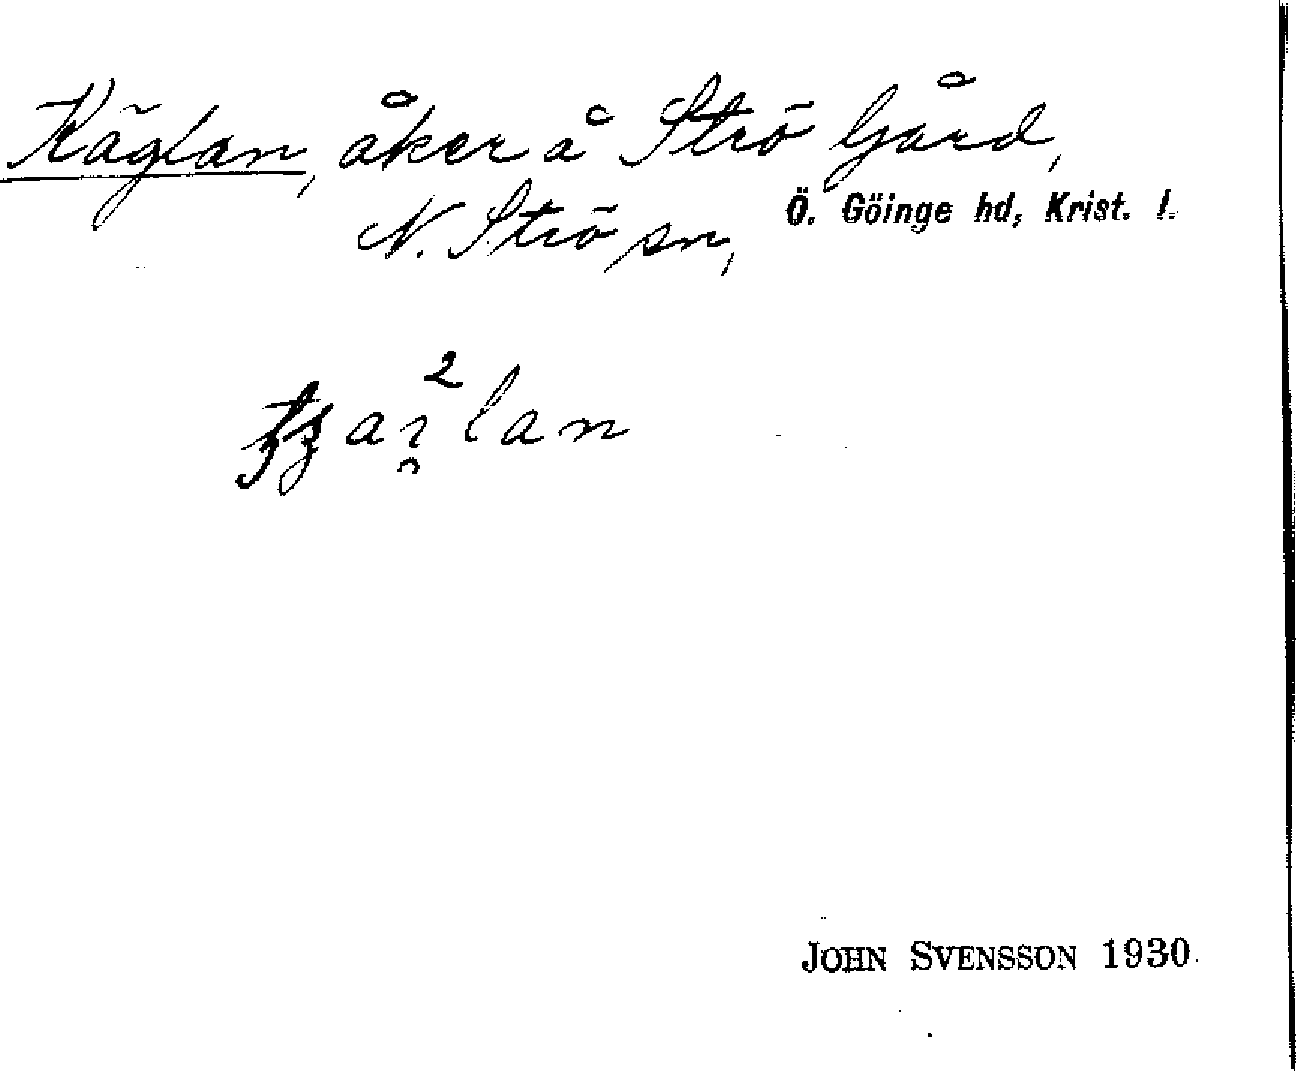 Käglan, åker å Strö Gård,
N. Strö sn, Ö. Göinge hd, Krist. l.
JOHN SVENSSON 1930